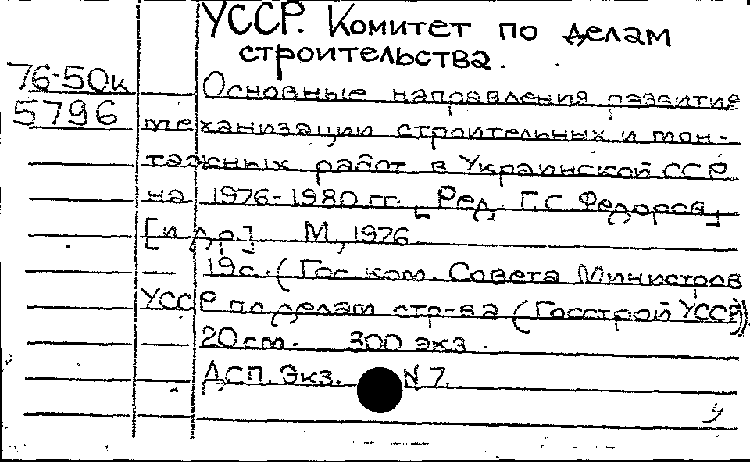 УССР. Комитет по делам
строительства.
76-50к
5796
Основные направления развития
механизации строительных и мон-
тажных работ в Украинской ССР
на 1976-1980 гг. [Ред. Г.С. Федоров,]
[и др.] М., 1976.
19с. (Гос. ком. Совета Министров
УССР по делам стр-ва (Госстрой УССР))
20 см. 300 экз.
ДСП. Экз. N 7.